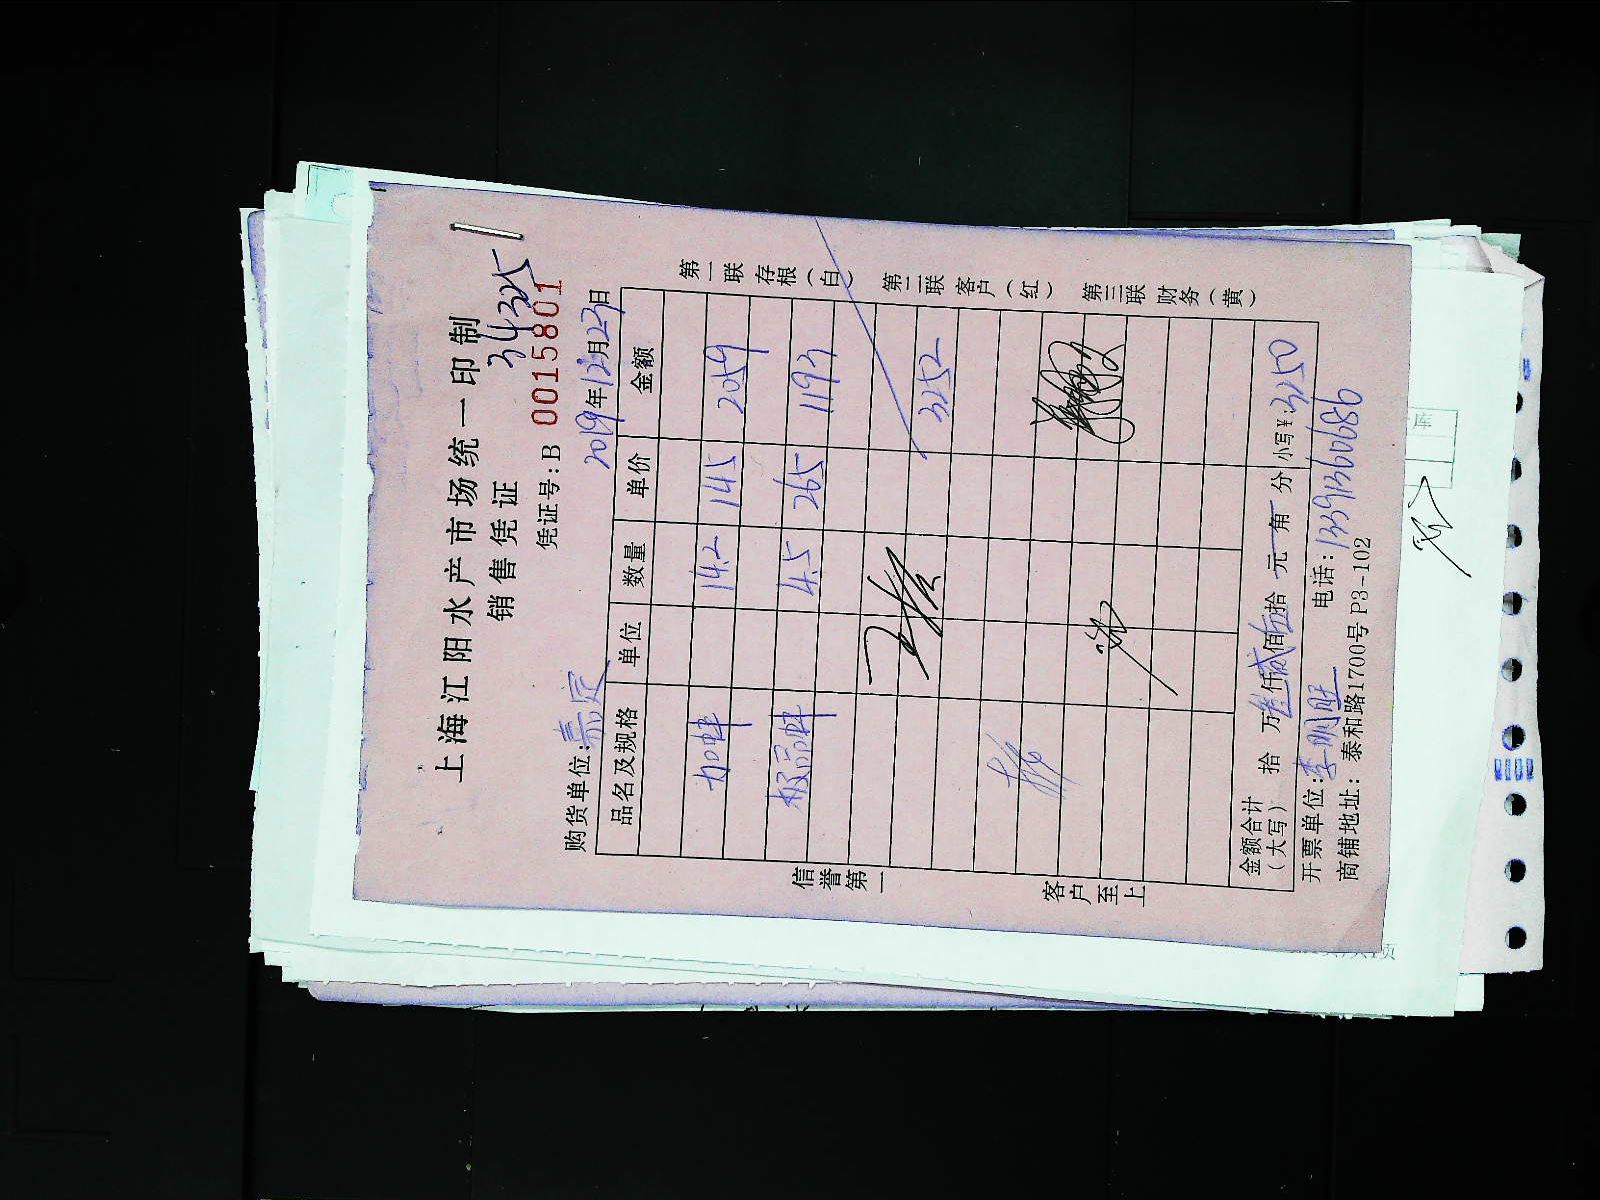 上海江阳水产市场统一印制
销售凭证
34325
凭证号:B 0015801
购货单位:嘉定 2019年12月23日
品名及规格 单位 数量 单价 金额
加蚌 14.2 145 2059
极品蚌 4.5 265 1193
3252
金额合计(大写) 拾 万叁仟贰佰伍拾 元 角 分 小写¥:3250
开票单位:李明旺 电话:13391360686
商铺地址:泰和路1700号P3-102
第一联 存根(白)
第二联 客户(红)
第三联 财务(黄)
信誉第一
客户至上
库
页